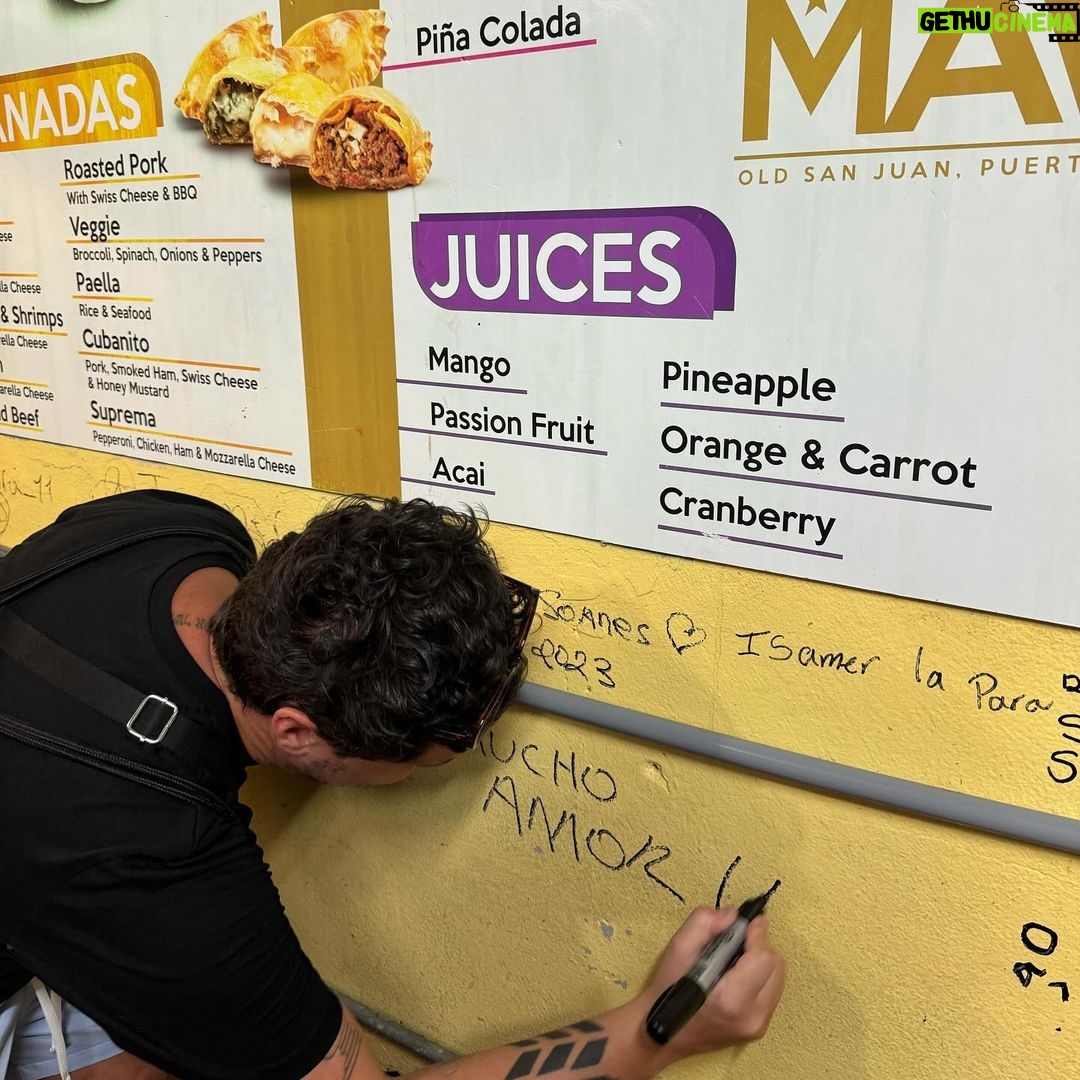 GETHUCINEMA
Piña Colada
MA
OLD SAN JUAN, PUERT
NADAS
Roasted Pork
With Swiss Cheese & BBQ
Veggie
Broccoli, Spinach, Onions & Peppers
Paella
Rice & Seafood
Cubanito
Pork, Smoked Ham, Swiss Cheese
& Honey Mustard
Suprema
Pepperoni, Chicken, Ham & Mozzarella Cheese
ese
la Cheese
& Shrimps
rella Cheese
arella Cheese
d Beef
JUICES
Mango
Passion Fruit
Acai
Pineapple
Orange & Carrot
Cranberry
SOANES
2023
ISamer la Para
UCHO
AMOR